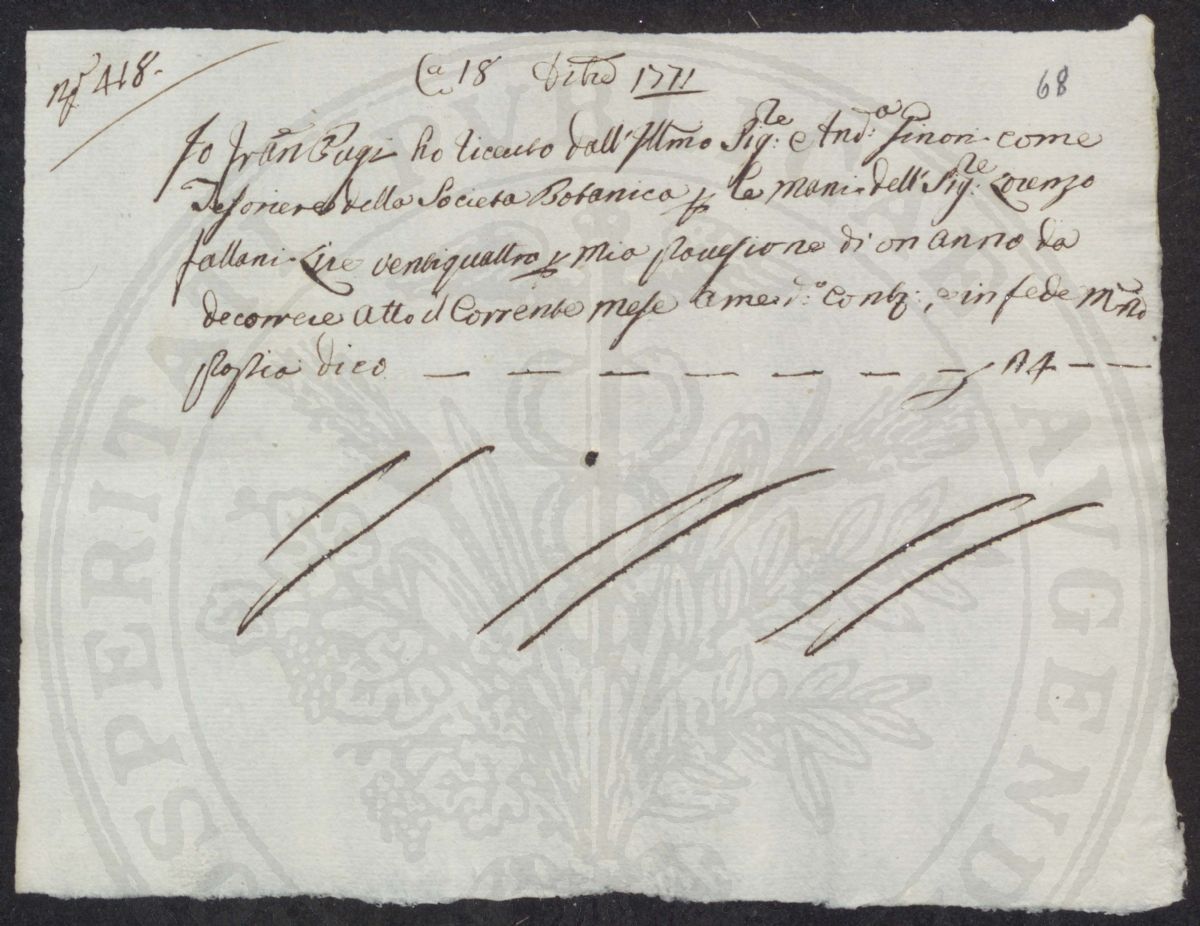 N° 418.
68
Ca 18 Xbre 1771
Io Fran Pugi ho riceuto dall' Illmo Sigre And:a Ginori come
Tesoriere della Societa Botanica p le mani dell' Sigre Lorenzo
fallani Lire ventiquattro p mia provisione di un anno da
decorrere atto il Corrente mese a me do conti:, e in fede Mno
propria dico — — — — — — — 24 — —
PROSPERITATI PVBLICAE AVGENDAE